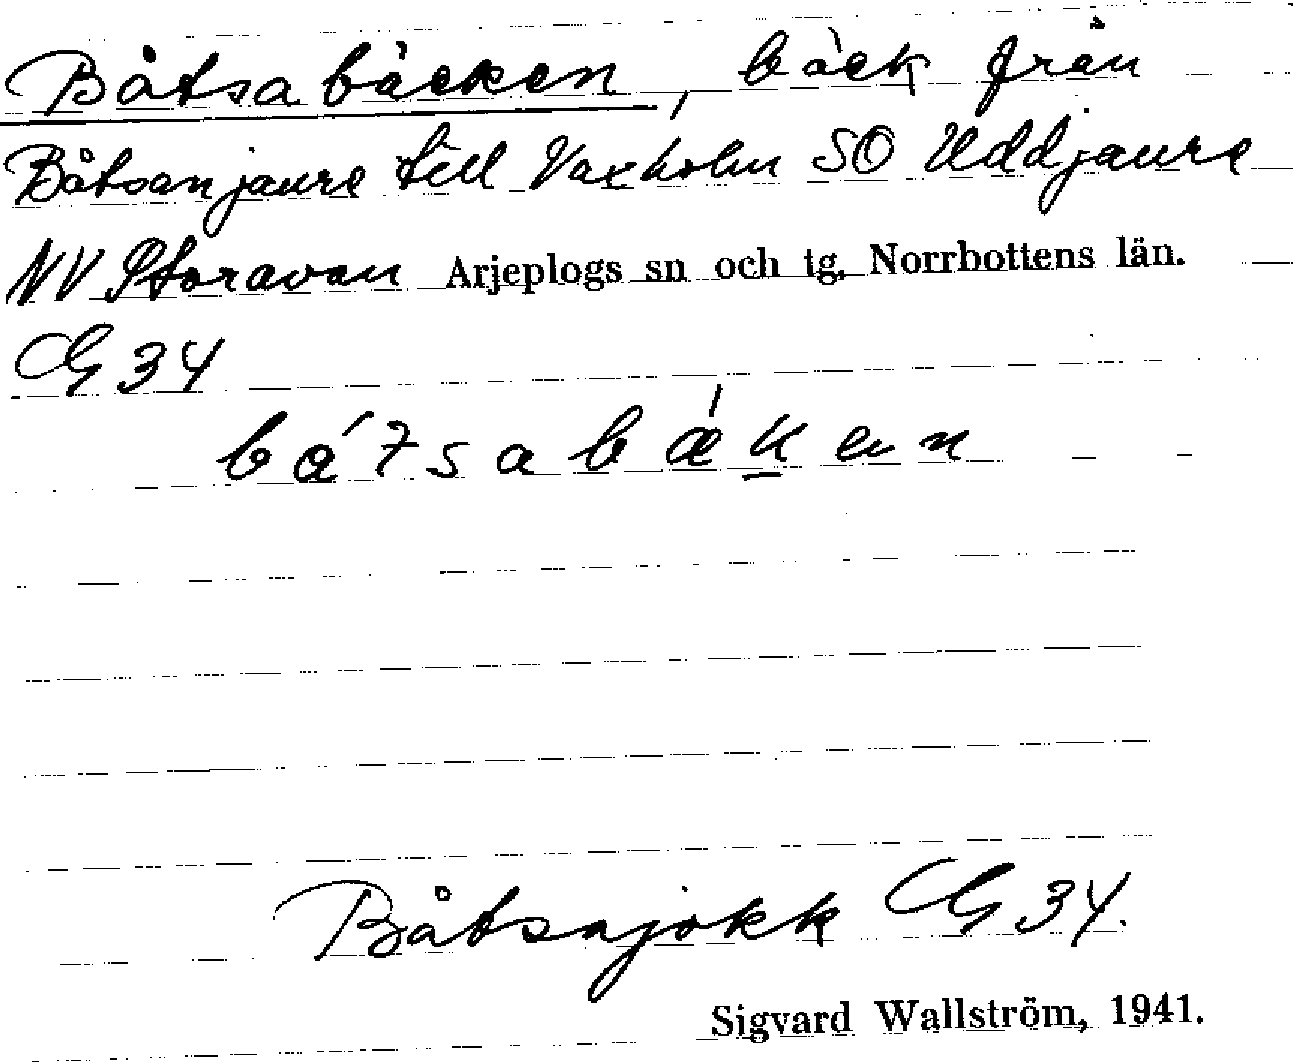 Båtsabäcken, bäck från
Båtsanjaure till Vaxholm SO Uddjaure
NV Storavan Arjeplogs sn och tg. Norrbottens län.
G 34
båtsabæken
Båtsajokk G 34.
Sigvard Wallström, 1941.